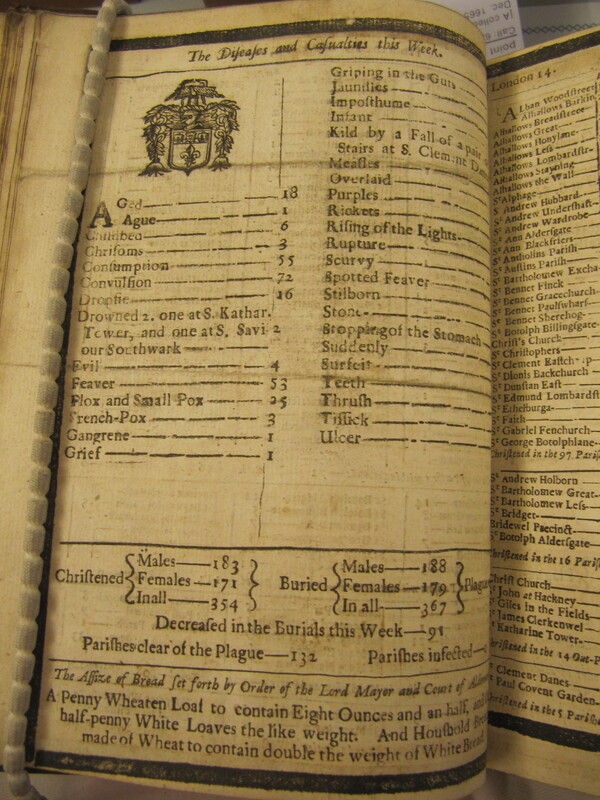 The Diſeaſes and Caſualties this Week.
Aged 18
Ague 1
Childbed 6
Chriſoms 3
Conſumption 55
Convulſion 72
Dropſie 26
Drowned 2. one at S. Kathar.
Tower, and one at S. Savi- 2
our Southwark
Evil 4
Feaver 53
Flox and Small Pox 25
French-Pox 3
Gangrene 1
Grief 1
Griping in the Guts
Jaundies
Impoſthume
Infant
Kild by a Fall of a pair
Stairs at S. Clement Danes
Meaſles
Overlaid
Purples
Rickets
Riſing of the Lights
Rupture
Scurvy
Spotted Feaver
Stilborn
Stone
Stopping of the Stomach
Suddenly
Surfeit
Teeth
Thruſh
Tiſſick
Ulcer
Chriſtened
Males 183
Females 171
In all 354
Buried
Males 188
Females 179
In all 367
Plague
Decreaſed in the Burials this Week 91
Pariſhes clear of the Plague 132 Pariſhes infected
The Aſſize of Bread ſet forth by Order of the Lord Mayor and Court of
A Penny Wheaten Loaf to contain Eight Ounces and an half, and
half-penny White Loaves the like weight. And Houſhold
made of Wheat to contain double the weight of White Bread
London 14.
Alban Woodſtreet
Alhallows Barkin
Alhallows Breadſtreet
Alhallows Great
Alhallows Honylane
Alhallows Leſs
Alhallows Lombardſtr
Alhallows Stayning
Alhallows the Wall
St Alphage
St Andrew Hubbard
St Andrew Underſhaft
St Andrew Wardrobe
St Ann Alderſgate
St Ann Blackfriers
St Antholins Pariſh
St Auſtins Pariſh
St Bartholomew Excha
St Bennet Finck
St Bennet Gracechurch
St Bennet Paulſwharf
St Bennet Sherehog
St Botolph Billingſgate
Chriſt's Church
St Chriſtophers
St Clement Eaſtcheap
St Dionis Backchurch
St Dunſtan Eaſt
St Edmund Lombardſt
St Ethelburga
St Faith
St Gabriel Fenchurch
St George Botolphlane
Chriſtened in the 97 Pariſ
St Andrew Holborn
St Bartholomew Great
St Bartholomew Leſs
St Bridget
Bridewel Precinct
St Botolph Alderſgate
Chriſtened in the 16 Pariſ
Chriſt Church
St John at Hackney
St Giles in the Fields
St James Clerkenwel
St Katharine Tower
Chriſtened in the 14 Out-P
St Clement Danes
St Paul Covent Garden
Chriſtened in the 5 Pariſh